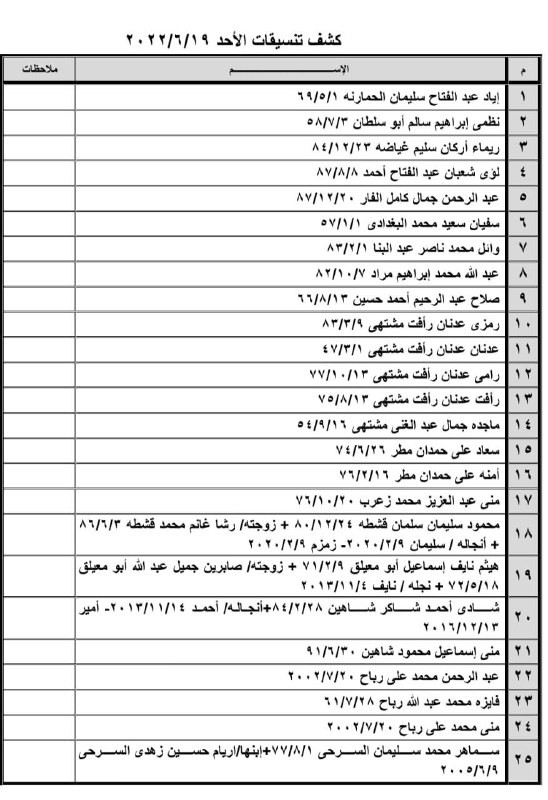 كشف تنسيقات الأحد ٢٠٢٢/٦/١٩
م الإســـــم ملاحظات
١ إياد عبد الفتاح سليمان الحمارنه ٦٩/٥/١
٢ نظمى إبراهيم سالم أبو سلطان ٥٨/٧/٣
٣ ريماء أركان سليم غياضه ٨٤/١٢/٢٣
٤ لؤى شعبان عبد الفتاح أحمد ٨٧/٨/٨
٥ عبد الرحمن جمال كامل الفار ٨٧/١٢/٢٠
٦ سفيان سعيد محمد البغدادى ٥٧/١/١
٧ وائل محمد ناصر عبد البنا ٨٣/٢/١
٨ عبد الله محمد إبراهيم مراد ٨٢/١٠/٧
٩ صلاح عبد الرحيم أحمد حسين ٦٦/٨/١٣
١٠ رمزى عدنان رأفت مشتهى ٨٣/٣/٩
١١ عدنان عدنان رأفت مشتهى ٤٧/٣/١
١٢ رامى عدنان رأفت مشتهى ٧٧/١٠/١٣
١٣ رأفت عدنان رأفت مشتهى ٧٥/٨/١٣
١٤ ماجده جمال عبد الغنى مشتهى ٥٤/٩/١٦
١٥ سعاد على حمدان مطر ٧٤/٦/٢٦
١٦ أمنه على حمدان مطر ٧٦/٢/١٦
١٧ منى عبد العزيز محمد زعرب ٧٦/١٠/٢٠
١٨ محمود سليمان سلمان قشطه ٨٠/١٢/٢٤ + زوجته/ رشا غانم محمد قشطه ٨٦/٦/٣
+ أنجاله / سليمان ٢٠٢٠/٢/٩- زمزم ٢٠٢٠/٢/٩
١٩ هيثم نايف إسماعيل أبو معيلق ٧١/٢/٩ + زوجته/ صابرين جميل عبد الله أبو معيلق
٧٢/٥/١٨ + نجله / نايف ٢٠١٣/١١/٤
٢٠ شادى أحمد شاكر شاهين ٨٤/٢/٢٨+أنجاله/ أحمد ٢٠١٣/١١/١٤- أمير
٢٠١٦/١٢/١٣
٢١ منى إسماعيل محمود شاهين ٩١/٦/٣٠
٢٢ عبد الرحمن محمد على رباح ٢٠٠٢/٧/٢٠
٢٣ فايزه محمد عبد الله رباح ٦١/٧/٢٨
٢٤ منى محمد على رباح ٢٠٠٢/٧/٢٠
٢٥ سماهر محمد سليمان السرحى ٧٧/٨/١+إبنها/اريام حسين زهدى السرحى
٢٠٠٥/٦/٩